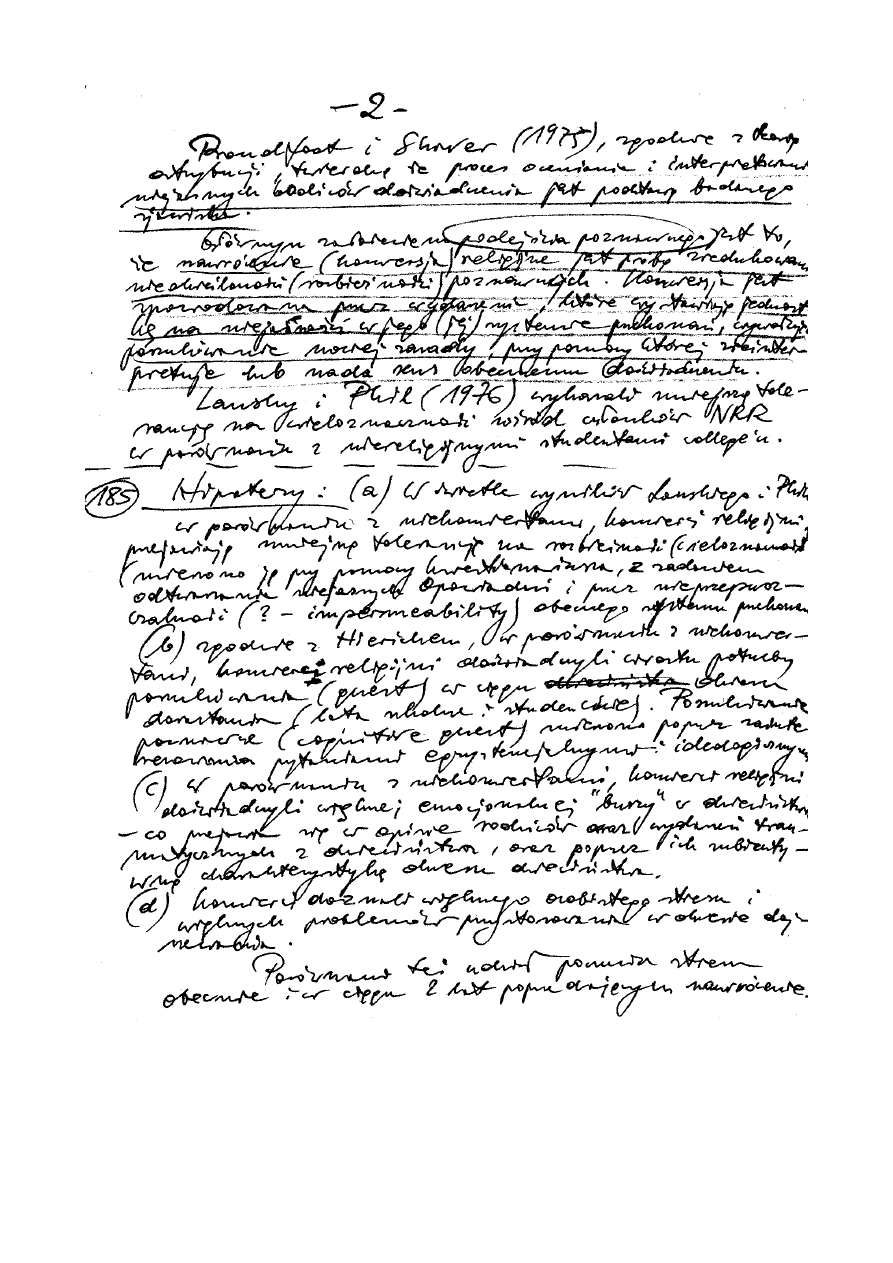 - 2 -
Proudfoot i Shaver (1975), zgodnie z teorią
atrybucji, twierdzą że proces oceniania i interpretowania
niejasnych bodźców doświadczenia jest podstawą badanego
zjawiska.
Głównym założeniem podejścia poznawczego jest to,
że nawrócenie (konwersja) religijne jest próbą zredukowania
nieokreśloności (rozbieżności) poznawczych. Konwersja jest
spowodowana przez wydarzenia, które wystawiają jednost-
kę na niejasności w jego (jej) systemie przekonań,
poszukiwanie nowej zasady, przy pomocy której zreinter-
pretuje lub nada sens obecnemu doświadczeniu.
Lansky i Phil (1976) wykazali mniejszą tole-
rancję na wieloznaczność wśród członków NRR
w porównaniu z niereligijnymi studentami college'u.
185 Hipotezy: (a) W świetle wyników Lansky'ego i Phila
w porównaniu z niekonwertami, konwerci religijni
przejawiają mniejszą tolerancję na rozbieżności (wieloznaczność)
(mierzono ją przy pomocy kwestionariusza, z zadaniem
odtwarzania niejasnych opowiadań i przez nieprzepusz-
czalność (? - impermeability) obecnego systemu przekonań
(b) zgodnie z Hierichem, w porównaniu z niekonwer-
tami, konwerci religijni doświadczyli wzrostu potrzeby
poszukiwania (quest) w ciągu okresu
dorastania (lata szkolne i studenckie). Poszukiwanie
poznawcze (cognitive quest) mierzono poprzez
pytaniami egzystencjalnymi i ideologicznymi
(c) W porównaniu z niekonwertami, konwerci religijni
doświadczyli większej emocjonalnej "burzy" w dzieciństwie
- co przejawia się w opisie rodziców oraz wydarzeń trau-
matycznych z dzieciństwa, oraz poprzez ich subiekty-
wną charakterystykę okresu dzieciństwa.
(d) konwerci doznali większego osobistego stresu i
większych problemów przystosowania w okresie doj-
rzewania.
Porównano też
obecnie i w ciągu 2 lat poprzedzających nawrócenie.